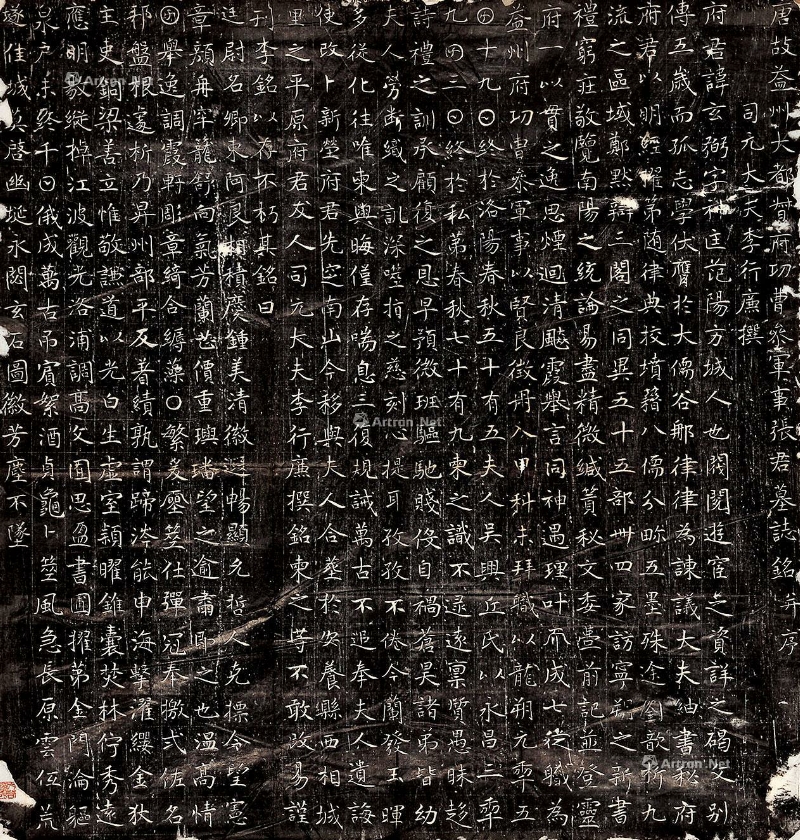 唐故益州大都督府功曹叅軍事張君墓誌銘并序
司元大夫李行廉撰
府君諱玄弼字神匡范陽方城人也閥閱遊宦之資詳之碣文別
傳五歲而孤志學伏膺於大儒谷那律律為諫議大夫紬書秘府
府君以明經擢第隨律典校墳籍八儒分畛五墨殊途劉歆析九
流之區域鄭默辯三閣之同異五十五部卅四家訪寧朔之新書
禮窮疰敬覽南陽之統論易盡精微緘賾秘文委前記並登靈
府一以貫之逸思煙迴清飈霞舉言同神遇理叶而成七從職為
益州府功曹叅軍事以賢良徵冊入甲科未拜職以龍朔元年五
月十九日終於洛陽春秋五十有五夫人吳興丘氏以永昌三年
九月三日終於私第春秋七十有九柬之識不逮遠稟賢愚昧趍
詩禮之訓承顧復之恩早預微班驅馳賤伇自禍蒼昊諸弟皆幼
夫人勞斷織之訓深噬指之慈刻心提耳孜孜不倦今蘭發玉暉
多從化往唯柬與晦僅存喘息三復規誡萬古不追奉夫人遺誨
使改卜新塋府君先窆南山今移與夫人合葬於安養縣西相城
里之平原府君友人司元大夫李行廉撰銘柬之等不敢改易謹
刊李銘以存不朽其銘曰
廷尉名卿東阿良相積慶鍾美清徽遐暢顯允哲人克摽令望憲
章顏冉牢籠舒向氣芳蘭茝價重璵璠望之逾肅即之也溫高情
月舉逸調霞軒彫章綺合縟藻〇繁爰應筮仕彈冠奉檄弍佐名
邦盤根遽析乃昇州部平反著績孰謂蹄涔能申海擊濯纓金狄
主吏銅梁善立惟敬謙道以光白生虛室穎曜錐囊焚林佇秀遠
應明敭縱棹江波觀光洛浦調高文囿思盈書圃擢第金門淪軀
泉戶未終千日俄成萬古吊賓絮酒貞龜卜筮風急長原雲低荒
遂佳城奚啓幽埏永閟玄石圖徽芳塵不墜
Artron.Net
Artron.Net
Artron.Net